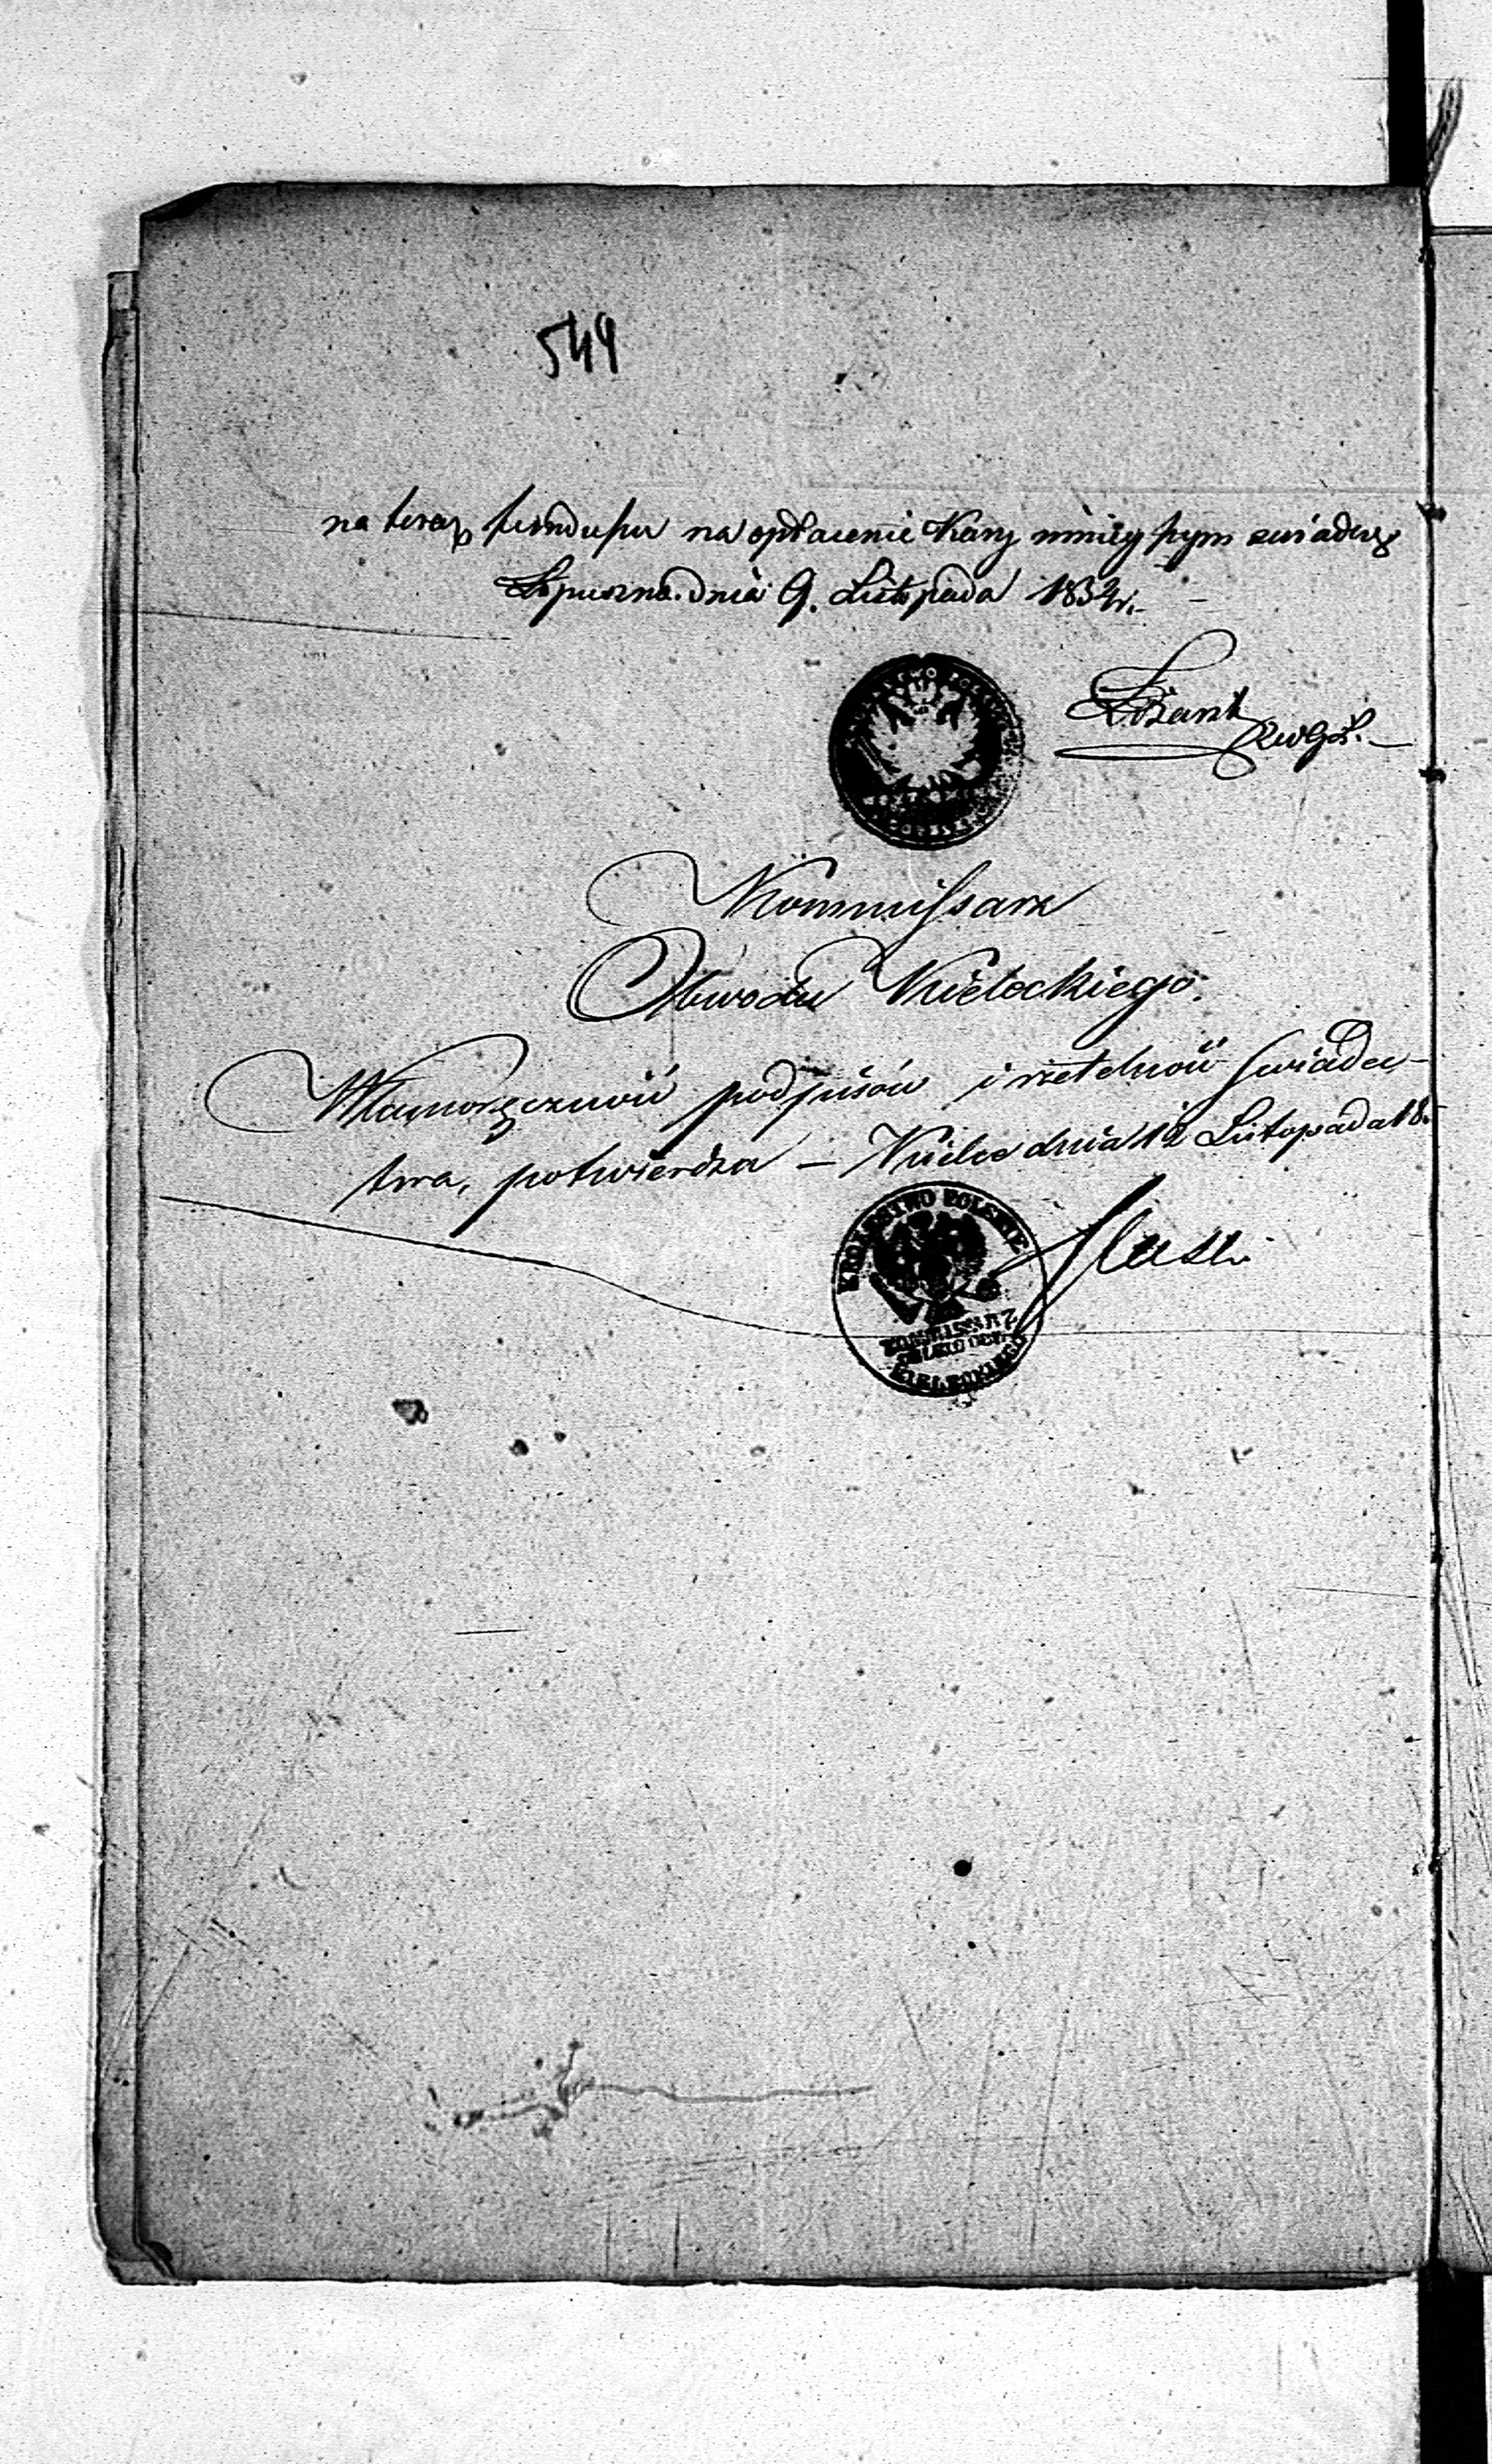 544
na teraz funduszu na opłacenie Kary ninieyszym zaświadcza
Łopuszno dnia 9. Listopada 1832 r.
Kommissarz
Obwodu Kieleckiego.
Własnoręczność podpisów i rzetelność świadec-
twa, potwierdza – Kielce dnia 12 Listopada 18
KROLESTWO POLSKIE
KOMMISSARZ
KIELECKIEGO